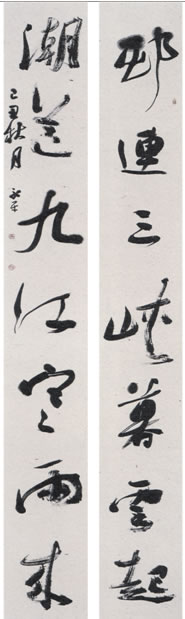 邨連三峽暮雲起
潮送九江寒雨來
己丑秋月